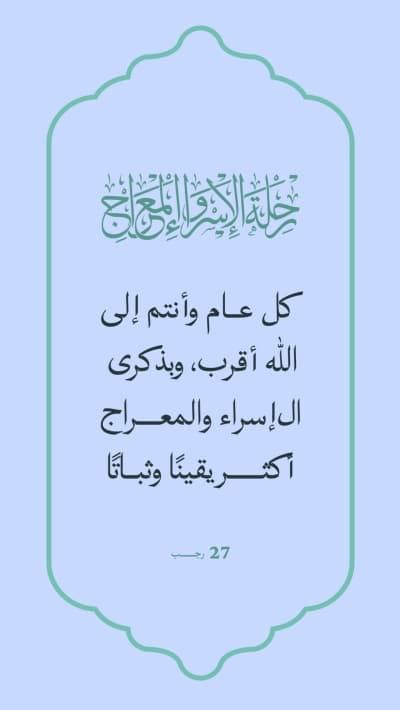 رحلة الإسراء والمعراج
كل عـام وأنتم إلى
الله أقرب، وبذكرى
الإسراء والمعـــراج
أكثـــر يقينًا وثبـاتًا
27 رجـــب